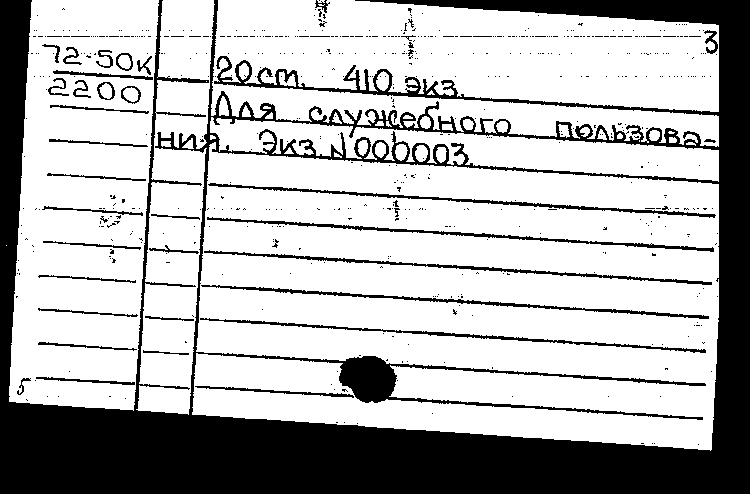 3
72-50к 20 см. 410 экз.
2200 Для служебного пользова-
ния. Экз. N000003.
5